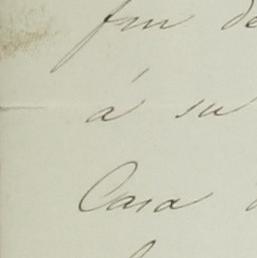 fin de
á su
Casa